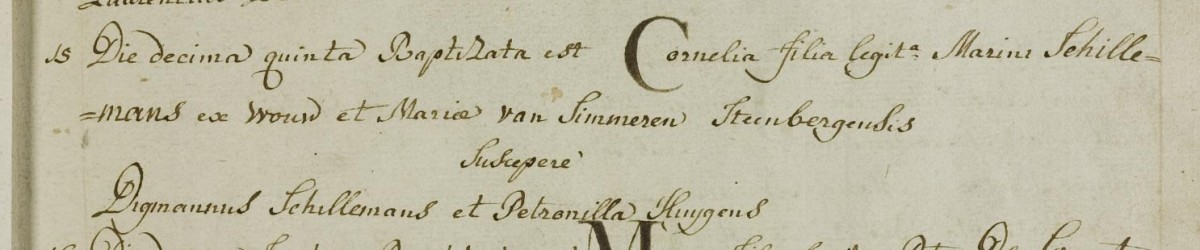 Laurentius
15 Die decima quinta Baptizata est Cornelia filia legit.ᵃ Marini Schille=
=mans ex wouw et Mariæ van Simmeren Steenbergensis
Suscepere
Digmannus Schillemans et Petronilla Huygens